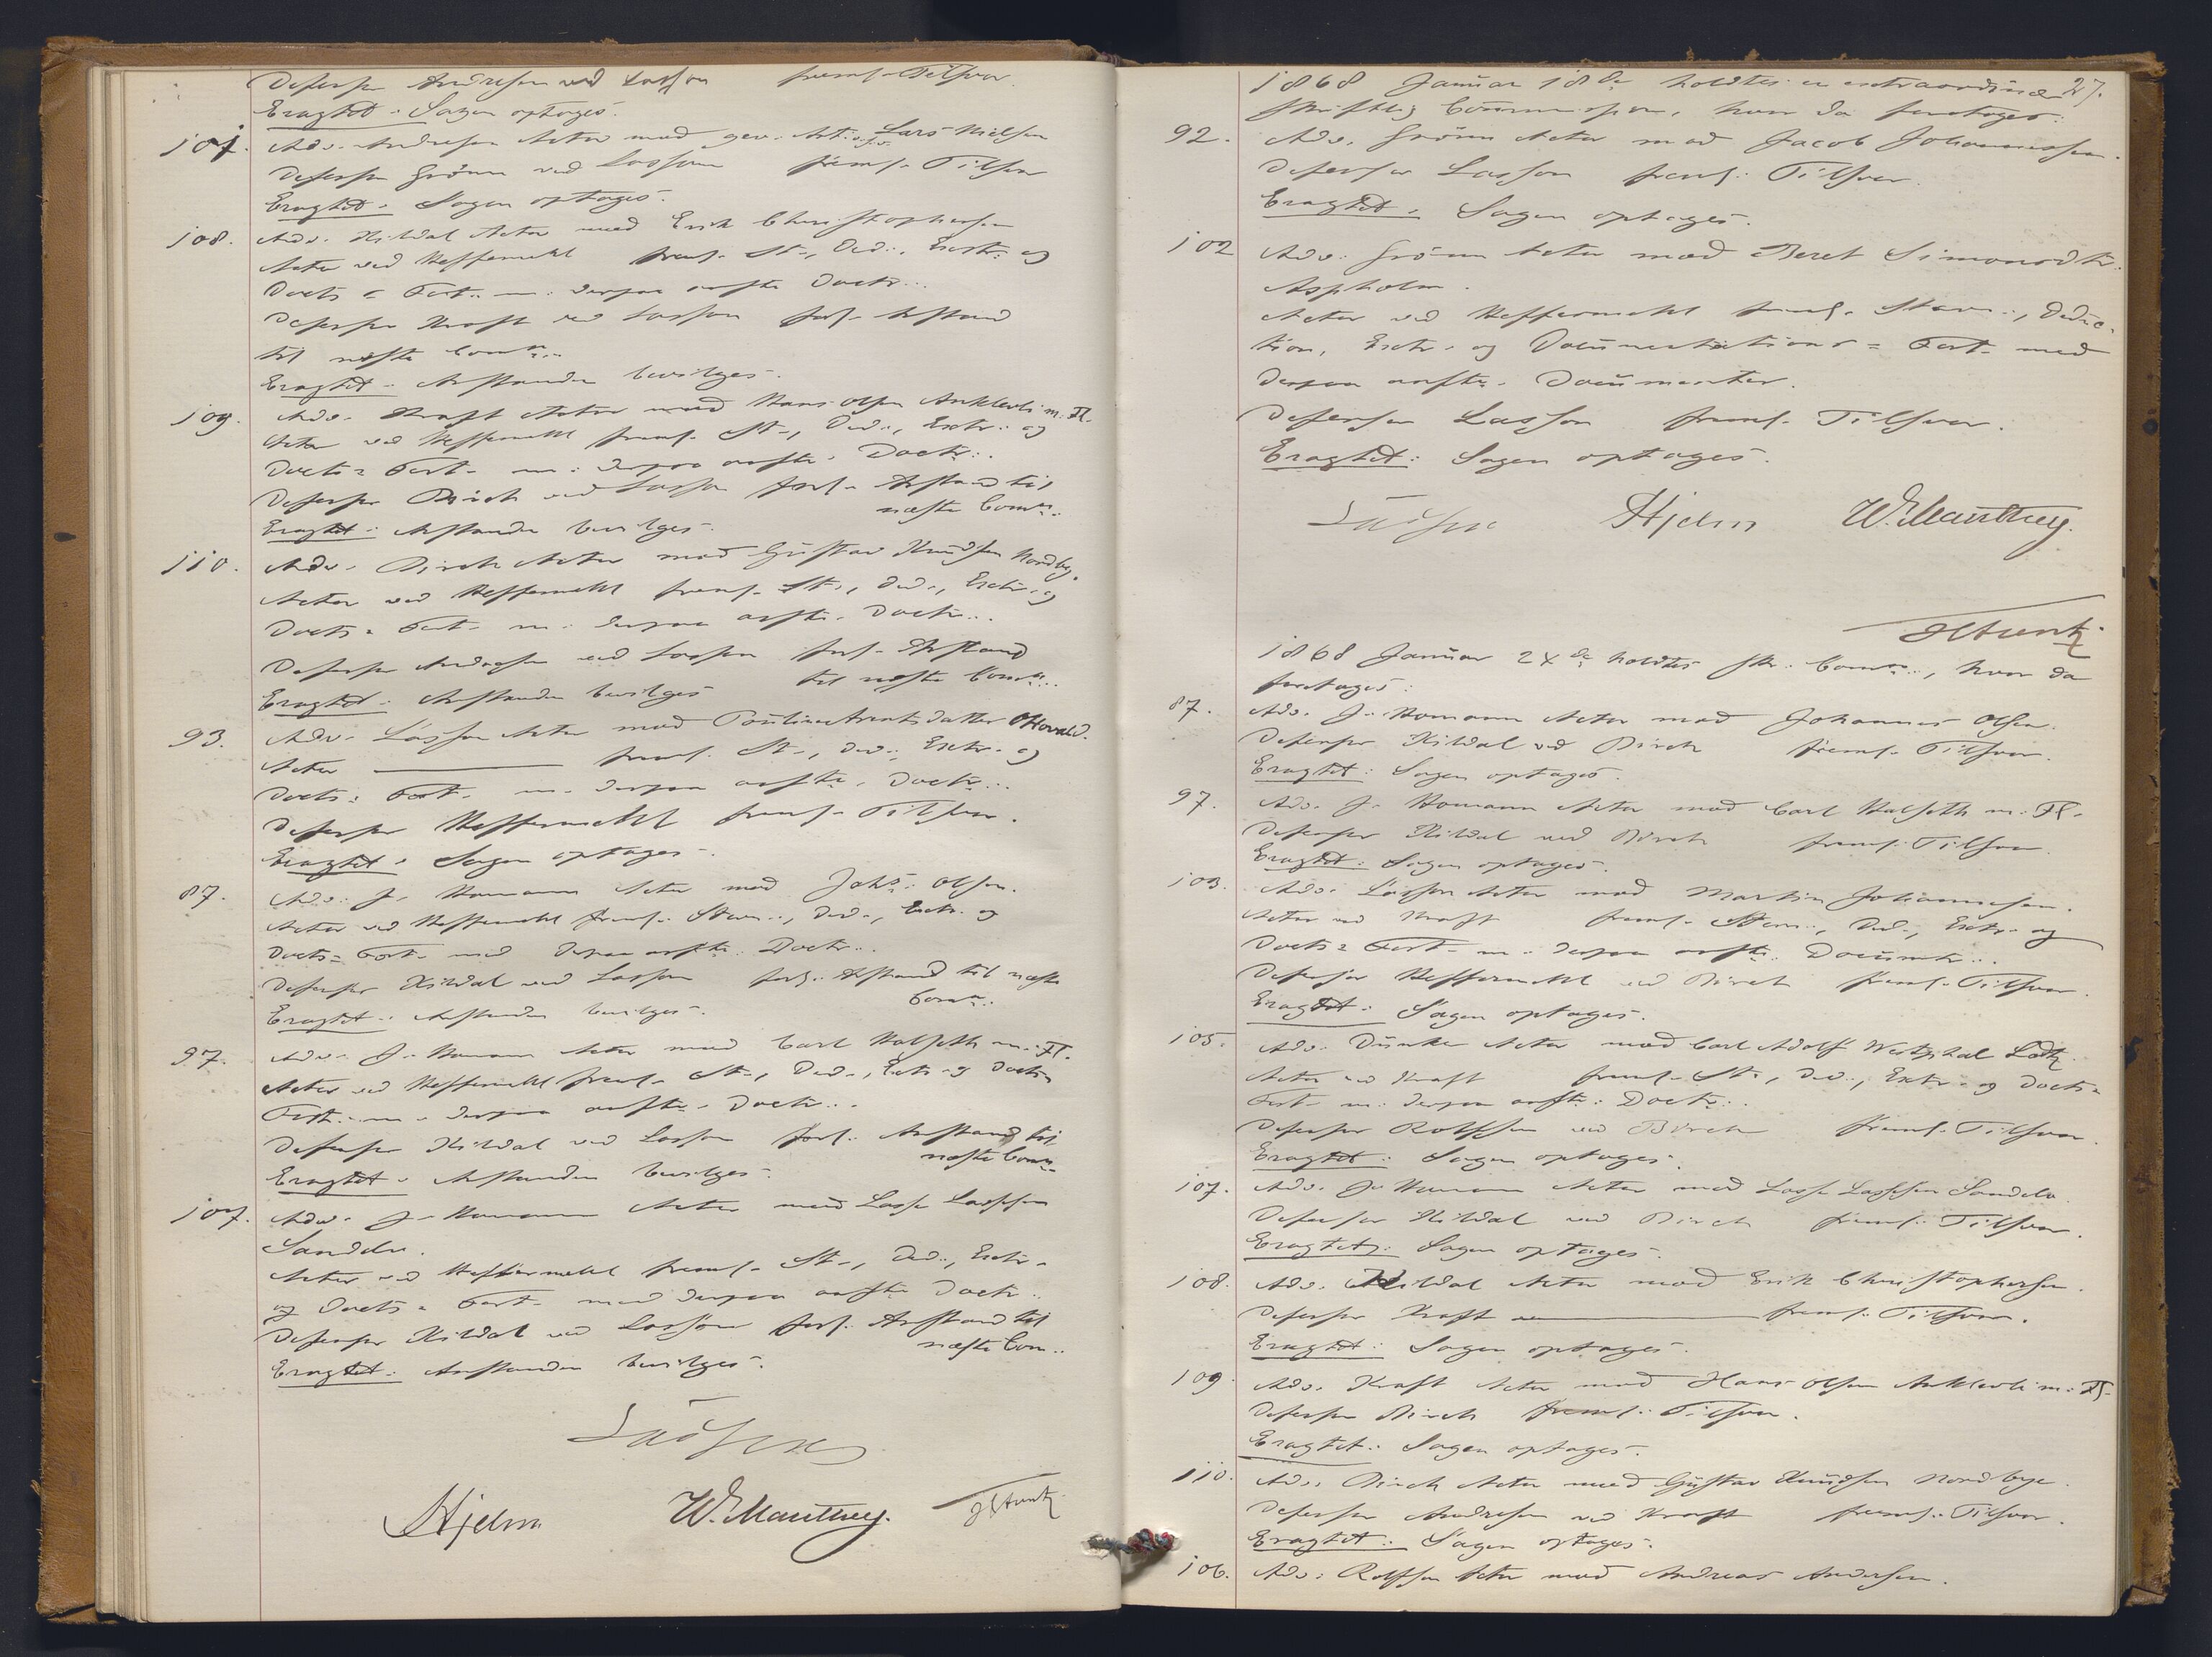 Defensor Andresen ved Lasson freml. Tilsvar.
Eragtet: Sagen optages.
101. Adv. Andresen Actor mod Lars Nielsen
Defensor Grönn ved Lasson freml. Tilsvar
Eragtet: Sagen optages.
108. Adv. Hildal Actor mod Erik Christophersen
Actor ved Heffermehl freml. St., Ded., Extr. og
Docts = Fort. m. derpaa anfte Doctr..
Defensor Kraft ved Lasson forl. Anstand
til næste Comn..
Eragtet: Anstanden bevilges.
109. Adv. Kraft Actor mod Hans Olsen Anklevli m. Fl.
Actor ved Heffermehl freml. St., Ded., Extr. og
Docts = Fort. m. derpaa anfte. Doctr..
Defensor Birch ved Lasson forl. Anstand til
næste Comn..
Eragtet: Anstanden bevilges.
110. Adv. Birch Actor mod Gustav Knudsen Nordby.
Actor ved Heffermehl freml. St., Ded., Extr. og
Docts = Fort. m. derpaa anfte. Doctr..
Defensor Andresen ved Lasson forl. Anstand
til næste Comn..
Eragtet: Anstanden bevilges
93. Adv. Lasson Actor mod Pouline Arentsdatter
Actor freml. St., Ded., Extr. og
Docts = Fort. m. derpaa anfte. Doctr..
Defensor Heffermehl freml. Tilsvar.
Eragtet: Sagen optages.
87. Adv. J. Homann Actor mod Johs. Olsen.
Actor ved Heffermehl freml. Stevn., Ded., Extr. og
Docts = Fort. med derpaa anfte. Doctr..
Defensor Hildal ved Lasson forl. Anstand til næste
Comn..
Eragtet: Anstanden bevilges.
97. Adv. J. Homann Actor mod Carl Halseth m. Fl.
Actor ved Heffermehl freml. St., Ded., Extr. og Docts =
Fort. m. derpaa anfte. Doctr..
Defensor Hildal ved Lasson forl. Anstand til
næste Comn.
Eragtet: Anstanden bevilges.
107. Adv. J. Homann Actor mod Lasse Lassesen
Sandelv.
Actor ved Heffermehl freml. St., Ded., Extr.
og Docts = Fort. med derpaa anfte Doctr..
Defensor Hildal ved Lasson forl. Anstand til
næste Com..
Eragtet: Anstanden bevilges.
Lasson
Hjelm W. Manthey.
27.
1868 Januar 18de holdtes en extraordinær
skriftlig Commission, hvor da foretoges:
92. Adv. Grönn Actor mod Jacob Johannessen.
Defensor Lasson freml. Tilsvar.
Eragtet: Sagen optages.
102 Adv. Grönn Actor mod Beret Simonsdtr.
Aspholm.
Actor ved Heffermehl freml. Stevn., Deduc-
tion, Extr. og Documentations = Fort. med
derpaa anfte. Documenter.
Defensor Lasson freml. Tilsvar.
Eragtet: Sagen optages.
Lasson Hjelm W. Manthey.
1868 Januar 24de holdtes skr. Comn.., hvor da
foretoges:
87. Adv. J. Homann Actor mod Johannes Olsen.
Defensor Hildal ved Birch freml. Tilsvar.
Eragtet: Sagen optages.
97. Adv. J. Homann Actor mod Carl Halseth m. Fl.
Defensor Hildal ved Birch freml. Tilsvar.
Eragtet: Sagen optages.
103. Adv. Lasson Actor mod Martin Johannesen.
Actor ved Kraft freml. Stevn., Ded., Extr. og
Docts = Fort. m. derpaa anfte. Documtr..
Defensor Heffermehl ved Birch freml. Tilsvar.
Eragtet: Sagen optages.
105. Adv. Dunker Actor mod Carl Adolf Westphal
Actor ved Kraft freml. St., Ded., Extr. og Docts =
Fort. m. derpaa anfte. Doctr..
Defensor Rolfsen ved Birch freml. Tilsvar.
Eragtet: Sagen optages.
107. Adv. J. Homann Actor mod Lasse Lassesen Sandelv.
Defensor Hildal ved Birch freml. Tilsvar.
Eragtet: Sagen optages.
108. Adv. Hildal Actor mod Erik Christophersen.
Defensor Kraft freml. Tilsvar.
Eragtet: Sagen optages.
109 Adv. Kraft Actor mod Hans Olsen Anklevli m. Fl.
Defensor Birch freml. Tilsvar.
Eragtet: Sagen optages.
110. Adv. Birch Actor mod Gustav Knudsen Nordbye
Defensor Andresen ved Kraft freml. Tilsvar.
Eragtet: Sagen optages.
106. Adv. Rolfsen Actor mod Andreas Andersen.